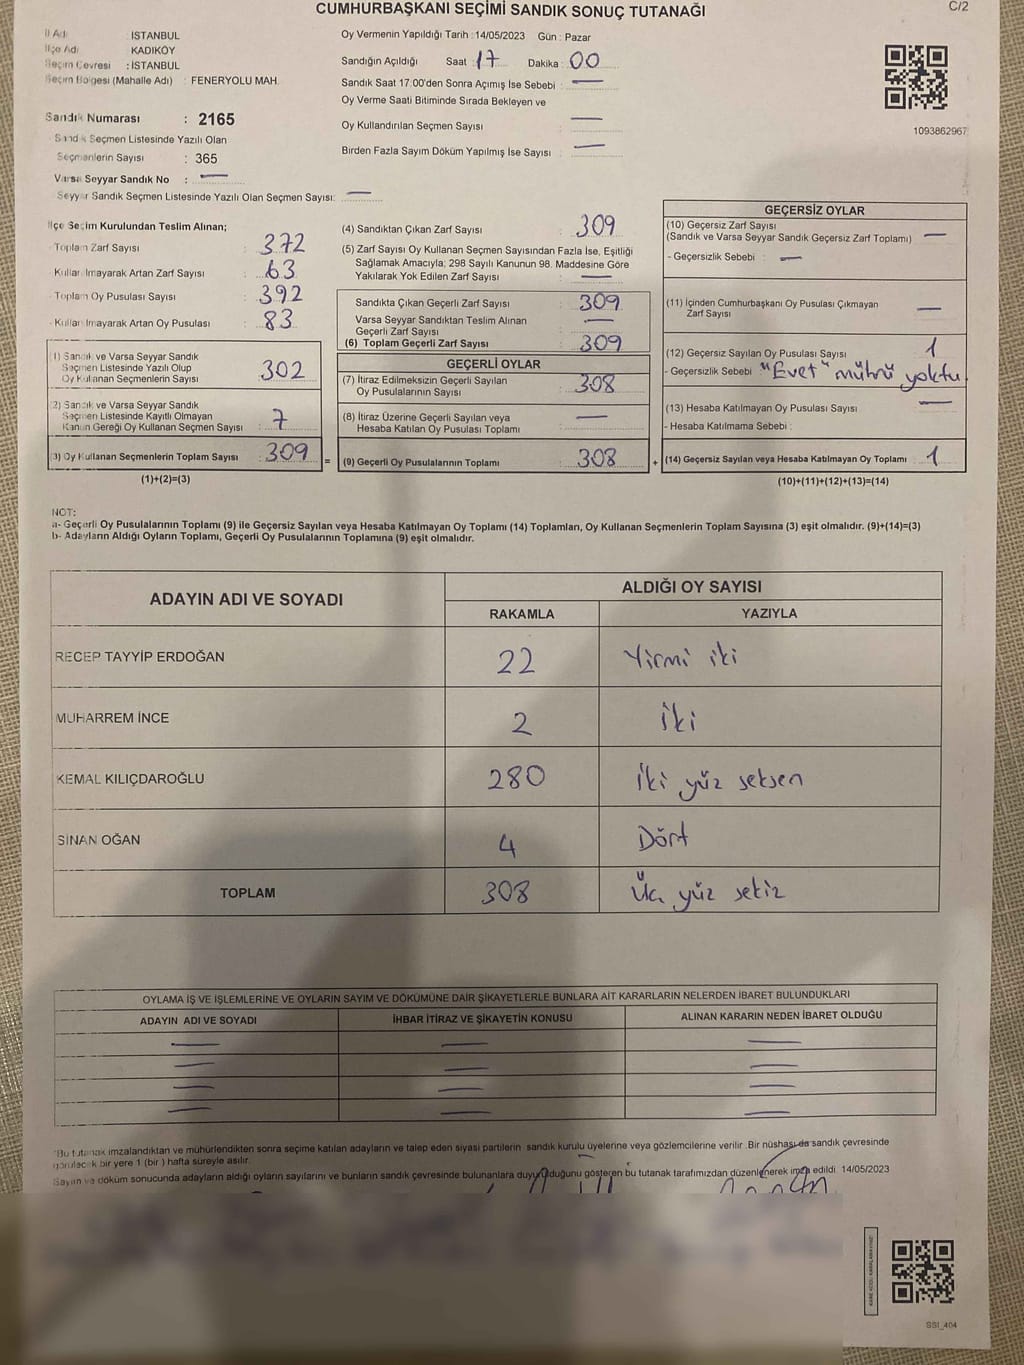 CUMHURBAŞKANI SEÇİMİ SANDIK SONUÇ TUTANAĞI
C/2
İl Adı İSTANBUL
İlçe Adı KADIKÖY
Seçim Çevresi : İSTANBUL
Seçim Bölgesi (Mahalle Adı) : FENERYOLU MAH.
Sandık Numarası : 2165
Sandık Seçmen Listesinde Yazılı Olan
Seçmenlerin Sayısı : 365
Varsa Seyyar Sandık No : —
Seyyar Sandık Seçmen Listesinde Yazılı Olan Seçmen Sayısı: —
Oy Vermenin Yapıldığı Tarih : 14/05/2023 Gün : Pazar
Sandığın Açıldığı Saat : 17 Dakika : 00
Sandık Saat 17:00'den Sonra Açımış İse Sebebi : —
Oy Verme Saati Bitiminde Sırada Bekleyen ve
Oy Kullandırılan Seçmen Sayısı : —
Birden Fazla Sayım Döküm Yapılmış İse Sayısı : —
1093862967
İlçe Seçim Kurulundan Teslim Alınan;
Toplam Zarf Sayısı : 372
Kullanılmayarak Artan Zarf Sayısı : 63
Toplam Oy Pusulası Sayısı : 392
Kullanılmayarak Artan Oy Pusulası : 83
1) Sandık ve Varsa Seyyar Sandık
Seçmen Listesinde Yazılı Olup
Oy Kullanan Seçmenlerin Sayısı : 302
2) Sandık ve Varsa Seyyar Sandık
Seçmen Listesinde Kayıtlı Olmayan
Kanun Gereği Oy Kullanan Seçmen Sayısı : 7
3) Oy Kullanan Seçmenlerin Toplam Sayısı : 309
(1)+(2)=(3)
(4) Sandıktan Çıkan Zarf Sayısı : 309
(5) Zarf Sayısı Oy Kullanan Seçmen Sayısından Fazla İse, Eşitliği
Sağlamak Amacıyla; 298 Sayılı Kanunun 98. Maddesine Göre
Yakılarak Yok Edilen Zarf Sayısı : —
Sandıkta Çıkan Geçerli Zarf Sayısı : 309
Varsa Seyyar Sandıktan Teslim Alınan
Geçerli Zarf Sayısı : —
(6) Toplam Geçerli Zarf Sayısı : 309
GEÇERLİ OYLAR
(7) İtiraz Edilmeksizin Geçerli Sayılan
Oy Pusulalarının Sayısı : 308
(8) İtiraz Üzerine Geçerli Sayılan veya
Hesaba Katılan Oy Pusulası Toplamı : —
= (9) Geçerli Oy Pusulalarının Toplamı : 308
GEÇERSİZ OYLAR
(10) Geçersiz Zarf Sayısı
(Sandık ve Varsa Seyyar Sandık Geçersiz Zarf Toplamı) : —
- Geçersizlik Sebebi : —
(11) İçinden Cumhurbaşkanı Oy Pusulası Çıkmayan
Zarf Sayısı : —
(12) Geçersiz Sayılan Oy Pusulası Sayısı : 1
- Geçersizlik Sebebi "Evet" mührü yoktu
(13) Hesaba Katılmayan Oy Pusulası Sayısı : —
- Hesaba Katılmama Sebebi :
+ (14) Geçersiz Sayılan veya Hesaba Katılmayan Oy Toplamı : 1
(10)+(11)+(12)+(13)=(14)
NOT:
a- Geçerli Oy Pusulalarının Toplamı (9) ile Geçersiz Sayılan veya Hesaba Katılmayan Oy Toplamı (14) Toplamları, Oy Kullanan Seçmenlerin Toplam Sayısına (3) eşit olmalıdır. (9)+(14)=(3)
b- Adayların Aldığı Oyların Toplamı, Geçerli Oy Pusulalarının Toplamına (9) eşit olmalıdır.
ADAYIN ADI VE SOYADI ALDIĞI OY SAYISI
RAKAMLA YAZIYLA
RECEP TAYYİP ERDOĞAN 22 Yirmi iki
MUHARREM İNCE 2 İki
KEMAL KILIÇDAROĞLU 280 İki yüz seksen
SİNAN OĞAN 4 Dört
TOPLAM 308 Üç yüz sekiz
OYLAMA İŞ VE İŞLEMLERİNE VE OYLARIN SAYIM VE DÖKÜMÜNE DAİR ŞİKAYETLERLE BUNLARA AİT KARARLARIN NELERDEN İBARET BULUNDUKLARI
ADAYIN ADI VE SOYADI İHBAR İTİRAZ VE ŞİKAYETİN KONUSU ALINAN KARARIN NEDEN İBARET OLDUĞU
— — —
— — —
— — —
— — —
Bu tutanak imzalandıktan ve mühürlendikten sonra seçime katılan adayların ve talep eden siyasi partilerin sandık kurulu üyelerine veya gözlemcilerine verilir. Bir nüshası da sandık çevresinde
görülecek bir yere 1 (bir) hafta süreyle asılır.
Sayım ve döküm sonucunda adayların aldığı oyların sayılarını ve bunların sandık çevresinde bulunanlara duyurulduğunu gösteren bu tutanak tarafımızdan düzenlenerek imza edildi. 14/05/2023
SSI_404